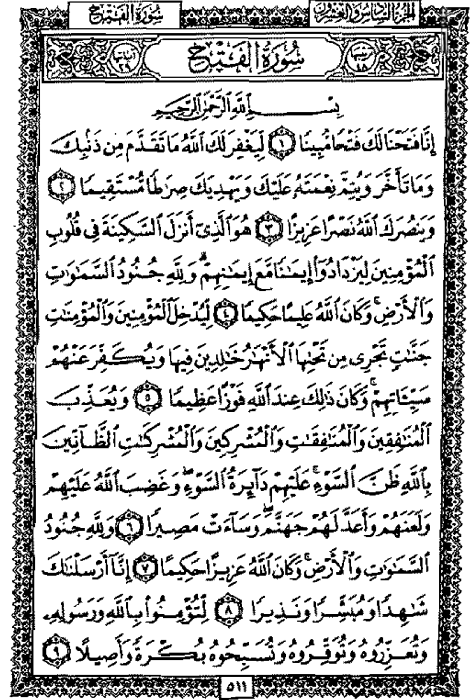 سُورَةُ الفَتْحِ
الجزء السادس والعشرون
سُورَةُ الفَتْحِ
بِسْمِ ٱللَّهِ ٱلرَّحْمَٰنِ ٱلرَّحِيمِ
إِنَّا فَتَحْنَا لَكَ فَتْحًا مُّبِينًا ١ لِّيَغْفِرَ لَكَ ٱللَّهُ مَا تَقَدَّمَ مِن ذَنۢبِكَ
وَمَا تَأَخَّرَ وَيُتِمَّ نِعْمَتَهُۥ عَلَيْكَ وَيَهْدِيَكَ صِرَٰطًا مُّسْتَقِيمًا ٢
وَيَنصُرَكَ ٱللَّهُ نَصْرًا عَزِيزًا ٣ هُوَ ٱلَّذِىٓ أَنزَلَ ٱلسَّكِينَةَ فِى قُلُوبِ
ٱلْمُؤْمِنِينَ لِيَزْدَادُوٓا۟ إِيمَٰنًا مَّعَ إِيمَٰنِهِمْ ۗ وَلِلَّهِ جُنُودُ ٱلسَّمَٰوَٰتِ
وَٱلْأَرْضِ ۚ وَكَانَ ٱللَّهُ عَلِيمًا حَكِيمًا ٤ لِّيُدْخِلَ ٱلْمُؤْمِنِينَ وَٱلْمُؤْمِنَٰتِ
جَنَّٰتٍ تَجْرِى مِن تَحْتِهَا ٱلْأَنْهَٰرُ خَٰلِدِينَ فِيهَا وَيُكَفِّرَ عَنْهُمْ
سَيِّـَٔاتِهِمْ ۚ وَكَانَ ذَٰلِكَ عِندَ ٱللَّهِ فَوْزًا عَظِيمًا ٥ وَيُعَذِّبَ
ٱلْمُنَٰفِقِينَ وَٱلْمُنَٰفِقَٰتِ وَٱلْمُشْرِكِينَ وَٱلْمُشْرِكَٰتِ ٱلظَّآنِّينَ
بِٱللَّهِ ظَنَّ ٱلسَّوْءِ ۚ عَلَيْهِمْ دَآئِرَةُ ٱلسَّوْءِ ۖ وَغَضِبَ ٱللَّهُ عَلَيْهِمْ
وَلَعَنَهُمْ وَأَعَدَّ لَهُمْ جَهَنَّمَ ۖ وَسَآءَتْ مَصِيرًا ٦ وَلِلَّهِ جُنُودُ
ٱلسَّمَٰوَٰتِ وَٱلْأَرْضِ ۚ وَكَانَ ٱللَّهُ عَزِيزًا حَكِيمًا ٧ إِنَّآ أَرْسَلْنَٰكَ
شَٰهِدًا وَمُبَشِّرًا وَنَذِيرًا ٨ لِّتُؤْمِنُوا۟ بِٱللَّهِ وَرَسُولِهِۦ
وَتُعَزِّرُوهُ وَتُوَقِّرُوهُ وَتُسَبِّحُوهُ بُكْرَةً وَأَصِيلًا ٩
٥١١